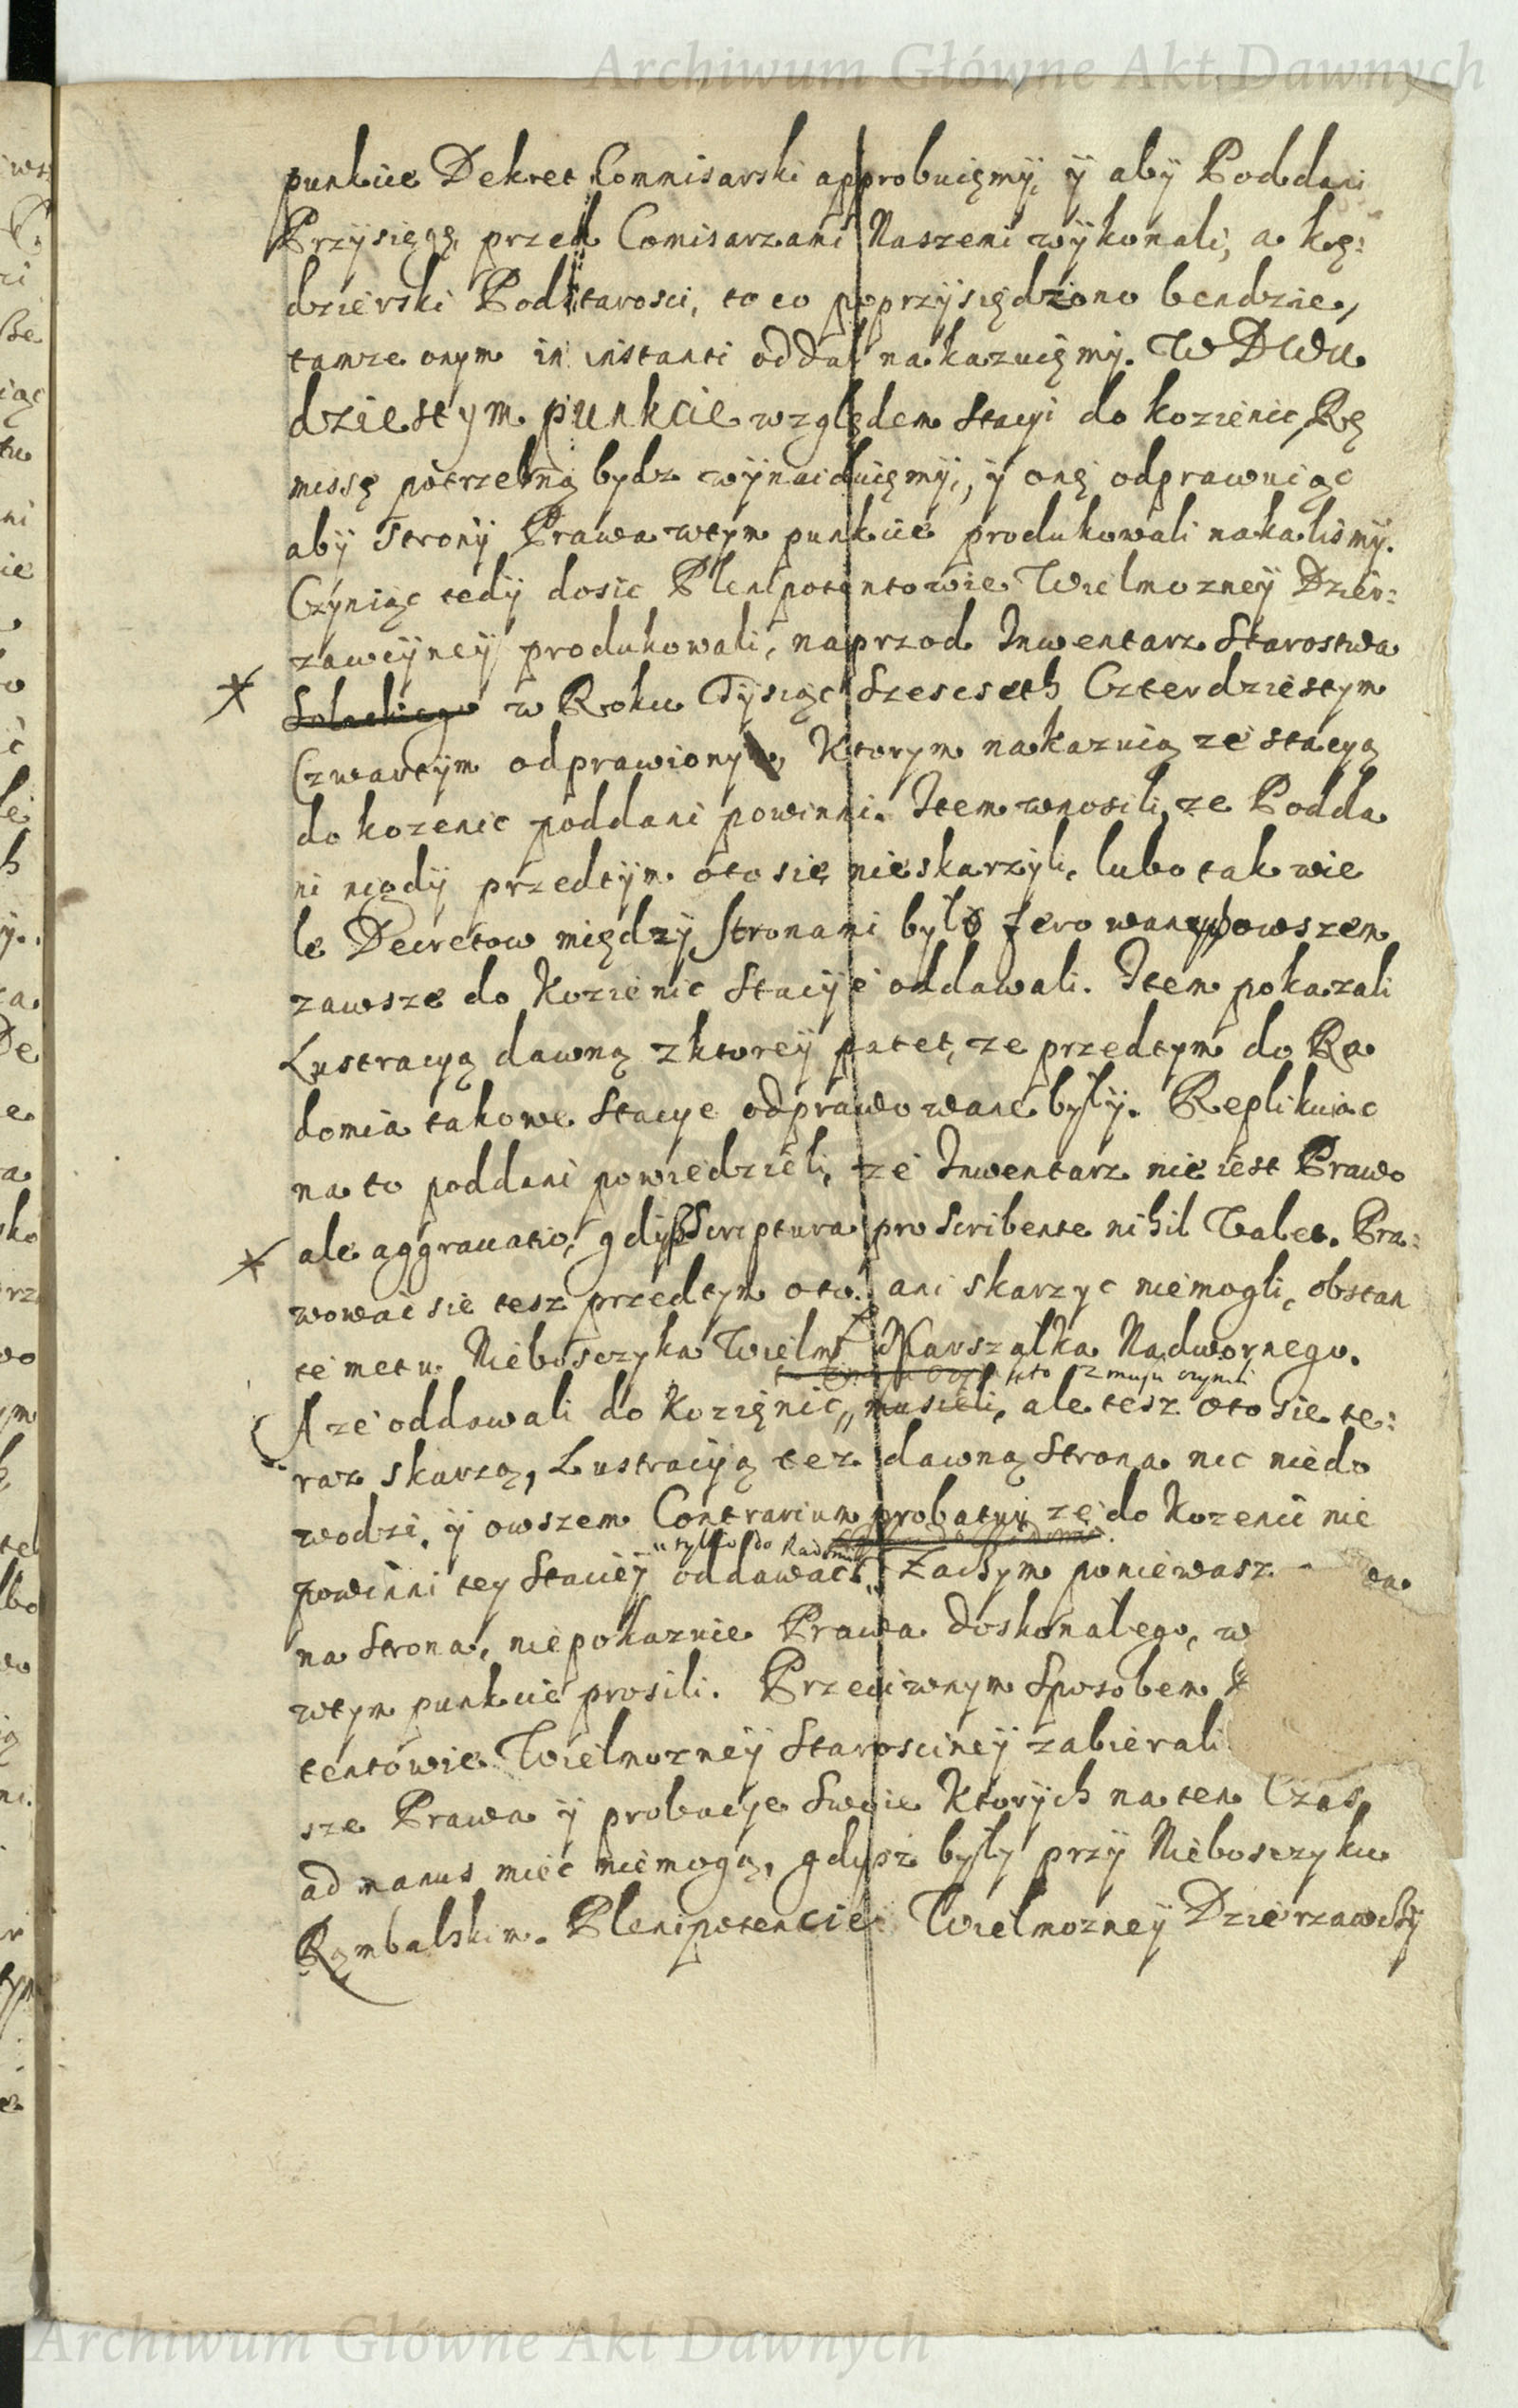 Archiwum Główne Akt Dawnych
punkcie Dekret Kommisarski approbuięmÿ, ÿ abÿ Poddani
Przÿsięgę przed Comisarzami Naszemi wÿkonali, a kę:
dzierski Podstarosci, to co poprzÿsiędziono bendzie,
tamze onym in instanti oddać nakazuięmÿ. W Dwu
dziestym punkcie względem Stacyi do kozienic, Rę
missę potrzebną bydz wÿnaiduięmÿ, ÿ onę odprawuiąc
abÿ Stronÿ Prawa wtym punkcie produkowali nakalismÿ.
Czÿniąc tedÿ dosic Plenipotentowie Wielmoznеÿ Dzier:
zawcÿneÿ produkowali, naprzod Inwentarz Starostwa
Soleckiego w Roku Tysiąc Szescseth Czterdziestym
Czwartÿm odprawiony, Ktorym nakazuią ze stacyą
do kozenic poddani powinni. Item wnosili, ze Podda
ni nigdÿ przedtÿm oto sie nieskarzÿli, lubo tak wie
le Decretow międzÿ Stronami było ferowanych owszem
zawsze do Kozienic Stacÿe oddawali. Item pokazali
Lustracyą dawną zktoreÿ patet, ze przedtym do Ra
domia takowe Stacye odprawowane bÿłÿ. Replikuiac
na to poddani powiedzieli, ze Inwentarz nie iest Prawo
ale aggrauatio, gdÿsz Scriptura pro Scribente nihil Valet. Pra:
wowac sie tesz przedtym oto ani skarzyc niemogli, obstan
te metu Nieboszczyka Wielmo Marszałka Nadwornego.
to z musu czynili
A ze oddawali do Kozięnic, musieli, ale tesz oto sie te:
raz skarzą, Lustracÿą tez dawną Strona nic niedo
wodzi, ÿ owszem Contrarium probatur ze do Kozenic nie
tylko do Radomia
powinni tey Stacieÿ oddawac. Zaczym poniewasz
na Strona, niepokazuie Prawa doskonałego, w
wtym punkcie prosili. Przeciwnym Sposobem
tentowie Wielmozneÿ Staroscineÿ zabierali
sze Prawa ÿ probacÿe Swoie Ktorÿch na ten Czas
ad manus miec niemogą, gdysz bÿłÿ przÿ Nieboszczyku
Rąmbalskim. Plenipotencie Wielmozneÿ Dzierzawcÿ
Archiwum Główne Akt Dawnych